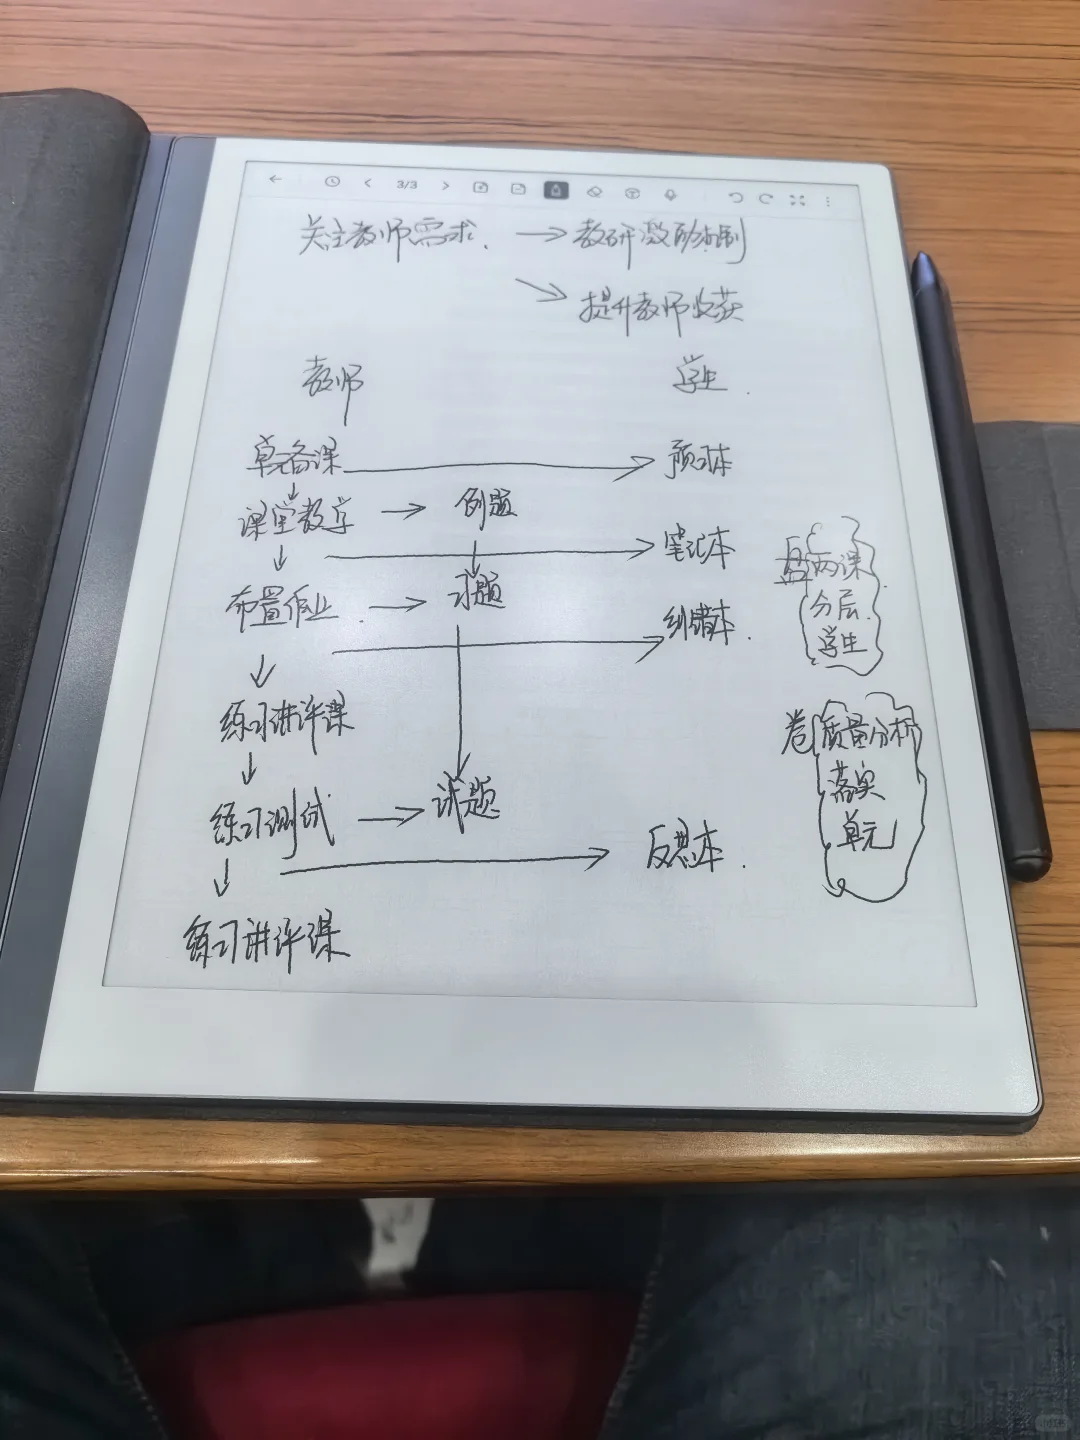 3/3
关注教师需求. → 教研激励机制
↘ 提升教师收获
教师 学生.
单元备课 → 预习本
↓
课堂教学 → 例题
↓ → 笔记本
布置作业. → 习题
→ 纠错本.
↓
练习讲评课
↓
练习测试 → 试题
↓ → 反思本.
练习讲评课
盘两课
分层.
学生
卷质量分析
落实
单元